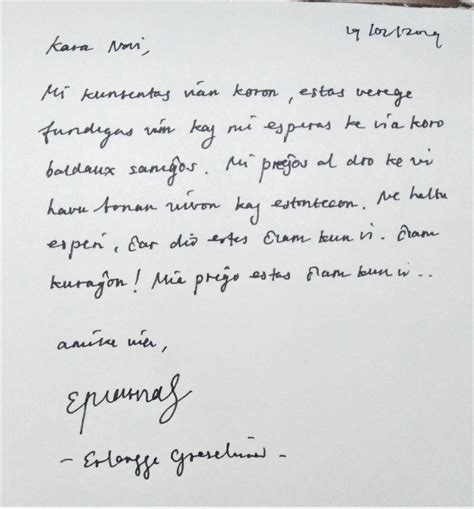 19/02/2019
Kara Novi,
Mi kunsentas vian koron, estas verege
fundigas vin kaj mi esperas ke via koro
baldaux saniĝos. Mi preĝos al dio ke vi
havu bonan vivon kaj estontecon. Ne haltu
esperi, ĉar dio estas ĉiam kun vi. Ĉiam
kuraĝon! Mia preĝo estas ĉiam kun vi..
amike via,
- Erlangga -